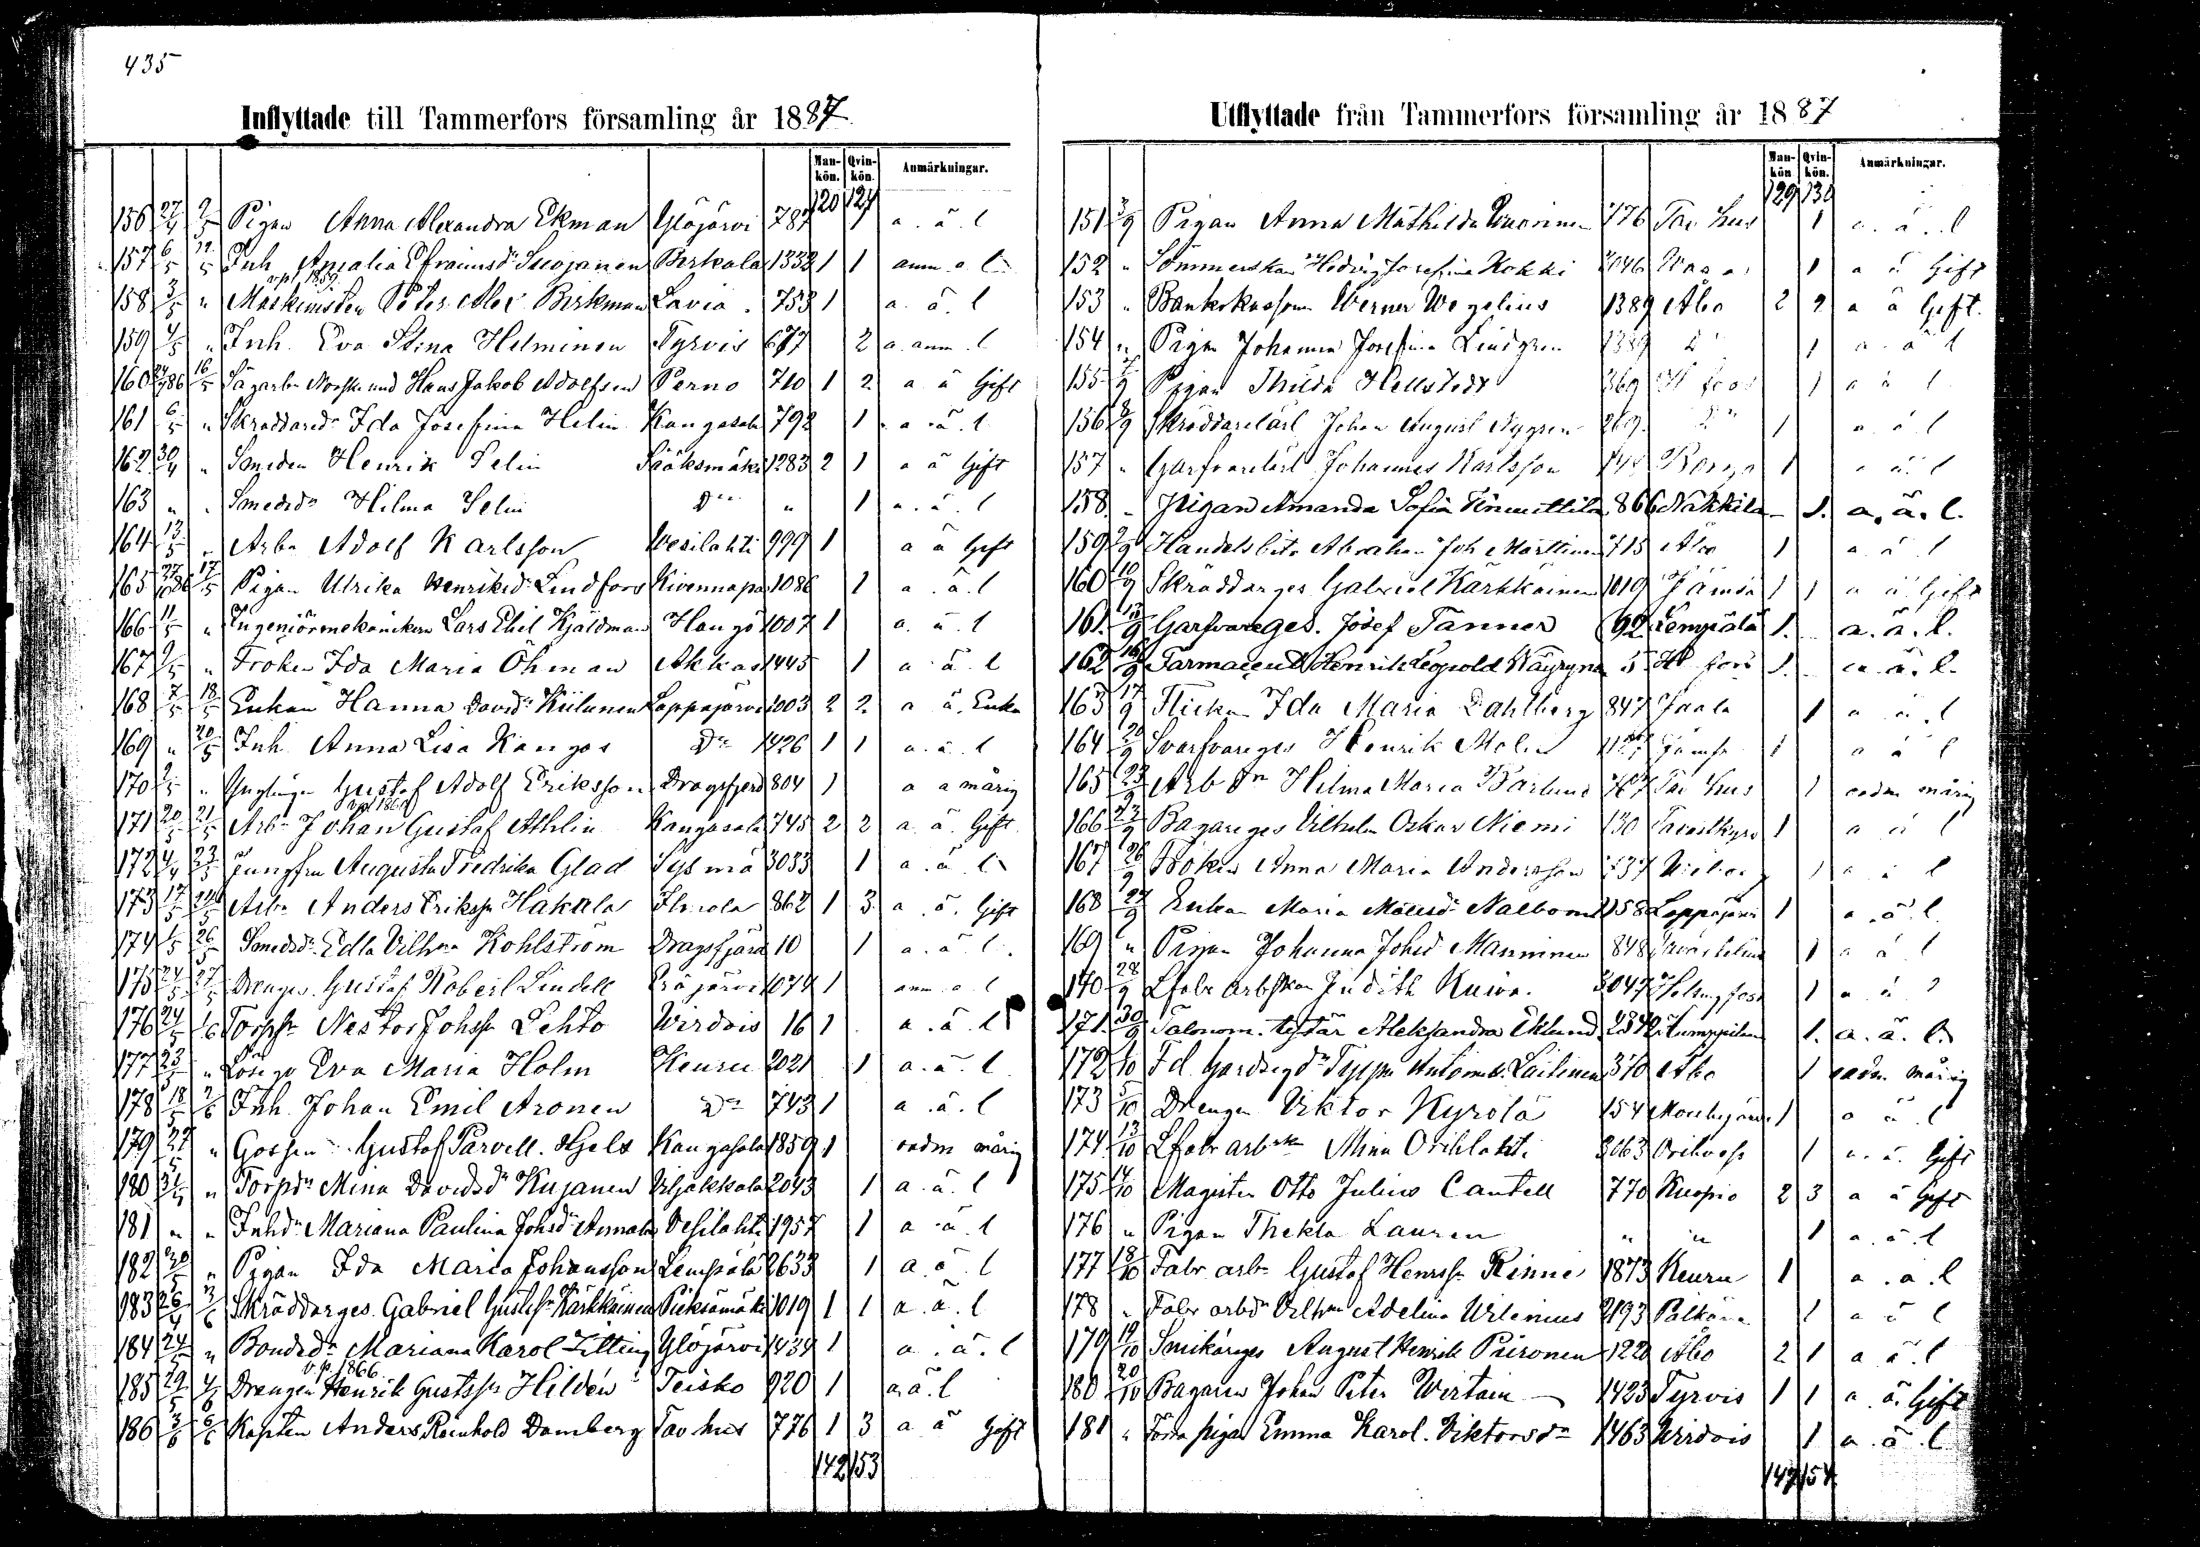 435
Inflyttade till Tammerfors församling år 1887
Mankön. Qvinkön. Anmärkningar.
120 127
156 27/4 9/5 Pigan Anna Alexandra Ekman Ylöjärvi 787 1 a. ä. l
157 6/5 12/5 Inh. Amalia Efraimsdr Suojanen Birkala 1332 1 1 anm. a l
158 3/5 " Maskinisten Peter Alex Birkman Lavia 753 1 a. ä. l
159 4/5 " Inh. Eva Stina Helminen Tyrvis 677 2 a. anm. l
160 16/5 Hans Jakob Adolfsen Perno 710 1 2 a ä Gift
161 6/5 " Skräddaredr Ida Josefina Helin Kangasala 792 1 a. ä. l
162 30/4 " Smeden Henrik Selin Sääksmäki 1283 2 1 a ä Gift
163 " " Smedsdr Hilma Selin Do " 1 a. ä. l
164 13/5 " Arbn Adolf Karlsson Vesilahti 999 1 a ä Gift
165 17/5 Pigan Ulrika Henriksdr Lindfors Kivennapa 1086 1 a. ä. l
166 11/5 " Ingeniörmekanikern Lars Emil Kjäldman Hangö 1007 1 a. ä. l
167 9/5 " Fröken Ida Maria Öhman Akkas 1445 1 a. ä. l
168 7/5 18/5 Enkan Hanna Davidsdr Kiilunen Lappajärvi 1003 2 2 a ä. Enka
169 " 20/5 Inh. Anna Lisa Kangas Do 1426 1 1 a. ä. l
170 9/5 " Ynglingen Gustaf Adolf Eriksson Dragsfjerd 804 1 a a mårig
171 20/5 21/5 Arbn Johan Gustaf Athlin Kangasala 745 2 2 a. ä. Gift
172 4/4 23/5 Jungfru Augusta Fredrika Glad Sysmä 3033 1 a. ä. l
173 17/5 24/5 Arbn Anders Eriksson Hakala Ilmola 862 1 3 a. ä. Gift
174 1/5 26/5 Smedsdr Edla Vilhma Kohlström Dragsfjärd 10 1 a. ä. l.
175 24/5 27/5 Drengen Gustaf Robert Lindell 1074 1 anm. a. l
176 24/5 1/6 Torpsn Nestor Johsson Lehto Wirdois 16 1 a. ä. l
177 23/5 " Lösepo Eva Maria Holm Keuru 2021 1 a. ä. l
178 18/5 2/6 Inh. Johan Emil Aronen Do 743 1 a. ä. l
179 27/5 " Gossen Gustaf Parvell. Hjels Kangasala 1859 1 oadm mårig
180 31/5 " Torpdr Mina Davidsdr Kujanen Viljakkala 2043 1 a. ä. l
181 " " Inhdr Mariana Paulina Johsdr Annala Vesilahti 1957 1 a. ä. l
182 30/5 " Pigan Ida Maria Johansson Lempäla 2633 1 a. ä. l
183 26/4 3/6 Skräddarges. Gabriel Gustafsn Kärkkäinen Pieksämäki 1019 1 1 a. ä. l
184 24/5 " Bondedr Mariana Karol Zitting Ylöjärvi 1434 1 a. ä. l
v.p. 1866
185 29/5 4/6 Drengen Henrik Gustsson Hildén Teisko 920 1 a. ä. l
186 3/6 6/6 Kapten Anders Reinhold Damberg Tav hus 776 1 3 a ä Gift
142 153
Utflyttade från Tammerfors församling år 1887
Mankön Qvinkön. Anmärkningar.
129 130
151 3/9 Pigan Anna Mathilda 776 Tav hus 1 a. ä. l
152 " Sömmerskan Hedvig Josefina Kokki 3046 Wasa 1 a ä Gift
153 " Bankokassören Werner Wegelius 1389 Åbo 2 2 a ä Gift.
154 " Pigan Johanna Josefina Lindgren 1389 Do 1 a. ä l
155 7/9 Pigan Thilda Hellstedt 369 H fors 1 a ä l
156 8/9 Skräddarelärl Johan August Nygren 269 Do 1 a. ä l
157 " Garfvarelärl Johannes Karlsson Borgo 1 a ä. l
158 " Pigan Amanda Sofia 866 Nakkila 1. a. ä. l.
159 9/9 Handelsbitr Abraham Joh Marttinen 715 Åbo 1 a. ä l
160 10/9 Skräddarges Gabriel Kärkkäinen 1019 Jämsä 1 1 a ä. Gift
161. 13/9 Garfvareges. Josef Tanner 92 Lempäla 1. a. ä. l.
162 16/9 Farmaceut Henrik Leopold Wäyrynen 5 H fors 1. a. ä. l.
163 17/9 Flickan Ida Maria Dahlberg 847 Jaala 1 a ä. l
164 20/9 Svarfvareges Henrik Molin 1 a ä l
165 23/9 Arb dr Hilma Maria Bärlund 767 Tav hus 1 oadm mårig
166 23/9 Bagareges Vilhelm Oskar Niemi 130 Tavastkyro 1 a ä l
167 26/9 Fröken Anna Maria Andersson 737 1 a ä l
168 27/9 Enkan Maria Nalbom 1158 Lappajärvi 1 a. ä. l.
169 " Pigan Johanna Johsd Manninen 848 1 a ä l
170 28/9 Lfabr arbskan Judith Kuiva. 3047 Helsingfors 1 a. ä l
171. 30/9 Aleksandra Eklund 1. a. ä. l.
172 /10 Fd. Gardsegdr 370 Åbo 1 oadm. mårig
173 5/10 Drengen Viktor Kyrölä 154 1 a ä l
174 13/10 Lfabr arbskn Mina Orihlahti 3063 Orihvesi 1 a. ä. Gift
175 14/10 Magister Otto Julius Cantell 770 Kuopio 2 3 a ä Gift
176 " Pigan Thekla Lauren " " 1 a. ä. l
177 18/10 Fabr arbn Gustaf Henrsson Rinne 1873 Keuru 1 a. ä. l
178 " Fabr arbdr Vilhma Adelina Wilenius 2193 Pälkäne 1 a ä l
179 19/10 Snickarges August Henrik Piironen 1220 Åbo 2 1 a ä. l
180 20/10 Bagaren Johan Peter Wirtain 1423 Tyrvis 1 1 a. ä. Gift
181 " Förra pigan Emma Karol. Viktorsdr 1463 Wirdois 1 a. ä. l
147 154